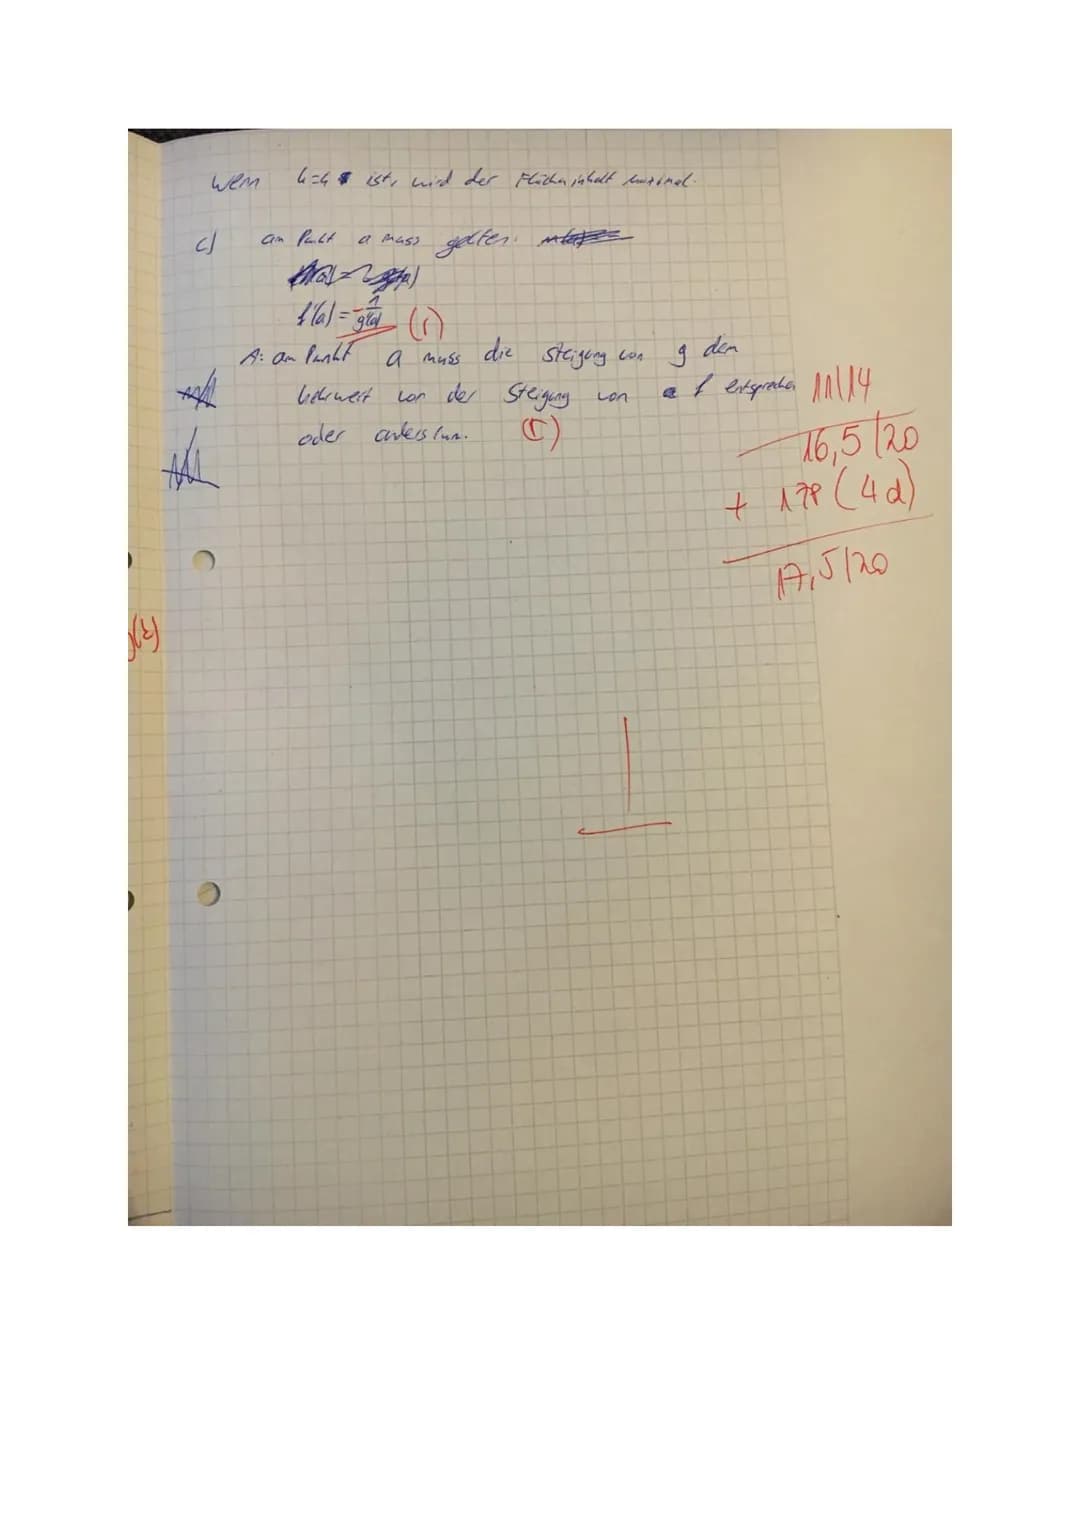 wenn h=4 ist, wird der Flächeninhalt maximal.
c) am Punkt a muss gelten:
f'(a) = -1/g'(a) (r)
A: am Punkt a muss die Steigung von g dem
Kehrwert von der Steigung von f entsprechen 11/14
oder andersrum. (r)
16,5/20
+ 1 (4d)
17,5/20